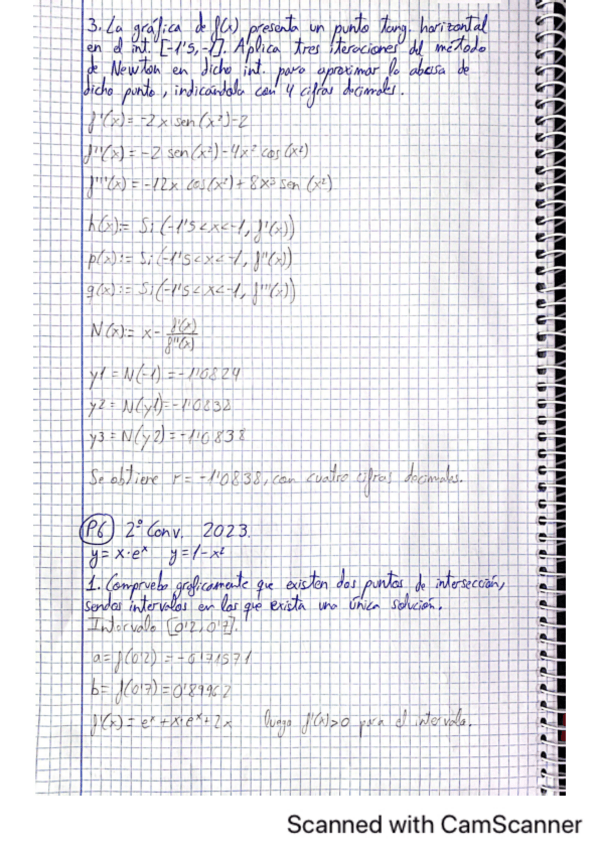 3. La gráfica de f(x) presenta un punto tang. horizontal
en el int. [-1'5,-1]. Aplica tres iteraciones del método
de Newton en dicho int. para aproximar la abcisa de
dicho punto, indicándola con 4 cifras decimales.
f'(x)= -2x sen(x²)-2
f''(x)= -2 sen(x²)-4x² cos(x²)
f'''(x)= -12x cos(x²)+8x³ sen(x²)
h(x):= Si(-1'5<x<-1, f'(x))
p(x):= Si(-1'5<x<-1, f''(x))
q(x):= Si(-1'5<x<-1, f'''(x))
N(x):= x- f'(x)/f''(x)
y1 = N(-1) = -1'0824
y2 = N(y1)= -1'0838
y3 = N(y2) = -1'0838
Se obtiene r = -1'0838, con cuatro cifras decimales.
P6) 2º Conv. 2023.
y= x·eˣ y=1-x²
1. Comprueba gráficamente que existen dos puntos de intersección,
sendos intervalos en los que exista una única solución.
Intervalo [0'2,0'7].
a= f(0'2) = -0'71571
b= f(0'7) = 0'89962
f'(x)= eˣ+x·eˣ+2x luego f'(x)>0 para el intervalo.
Scanned with CamScanner